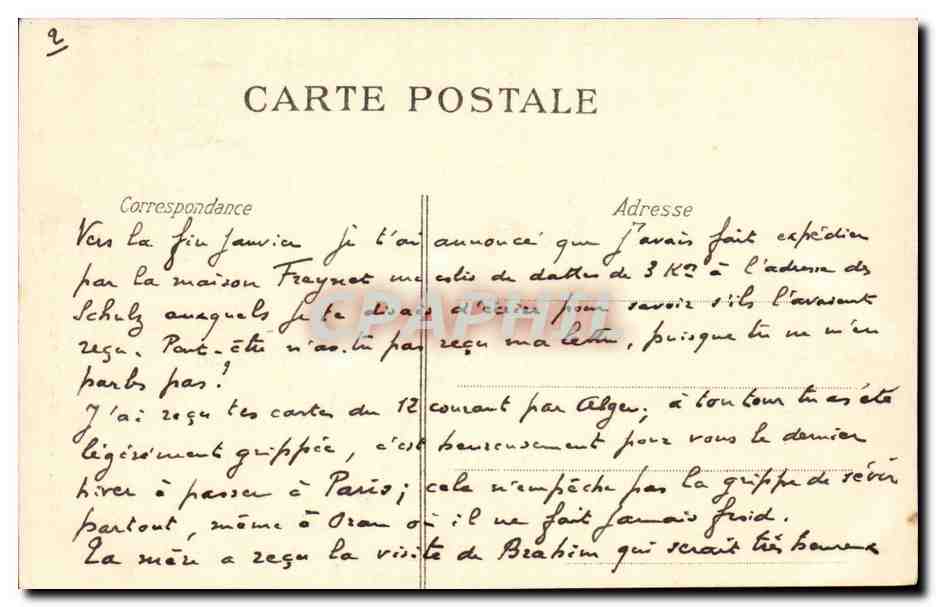 2
CARTE POSTALE
Correspondance
Adresse
Vers la fin Janvier je t'ai annoncé que j'avais fait expédier
par la maison Freynet un colis de dattes de 3 Kos à l'adresse des
Schulz auxquels je te disais d'écrire pour savoir s'ils l'avaient
reçu. Peut-être n'as-tu pas reçu ma lettre, puisque tu ne m'en
parles pas?
J'ai reçu tes cartes du 12 courant par Alger; à ton tour tu as été
légèrement grippée, c'est heureusement pour vous le dernier
hiver à passer à Paris; cela n'empêche pas la grippe de sévir
partout, même à Oran où il ne fait jamais froid.
La mère a reçu la visite de Brahim qui serait très heureux
CPAPHIL